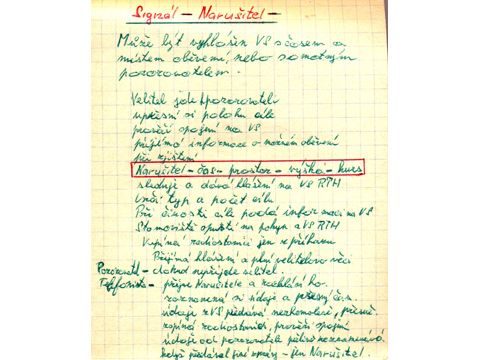 Signál – Narušitel –
Může být vyhlášen VS s časem a
místem oběvení, nebo samotným
pozorovatelem.
Velitel jde k pozorovateli
upřesní si polohu cíle
prověří spojení na VS
přijímá informace o možném oběvení
při zjištění
Narušitel – čas – prostor – výška – kurs
sleduje a dává hlášení na VS RTH
Určí typ a počet cílů
Při činnosti cíle podá informaci na VS
Stanoviště opustí na pokyn VS RTH
Vypíná radiostanici jen z příkazu
Přijímá hlášení a plní velitelovo věci
Pozorovatel – dokud nepřijde velitel.
Telefonista – přijme Narušitele a rozhlásí ho.
zaznamená si údaje a přesný čas.
údaje z VS předává nezkomoleně, přesně
zapíná radiostanici, prověří spojení
údaje od pozorovatele zaznamenává
když předával jiné zprávy – jen Narušitel.